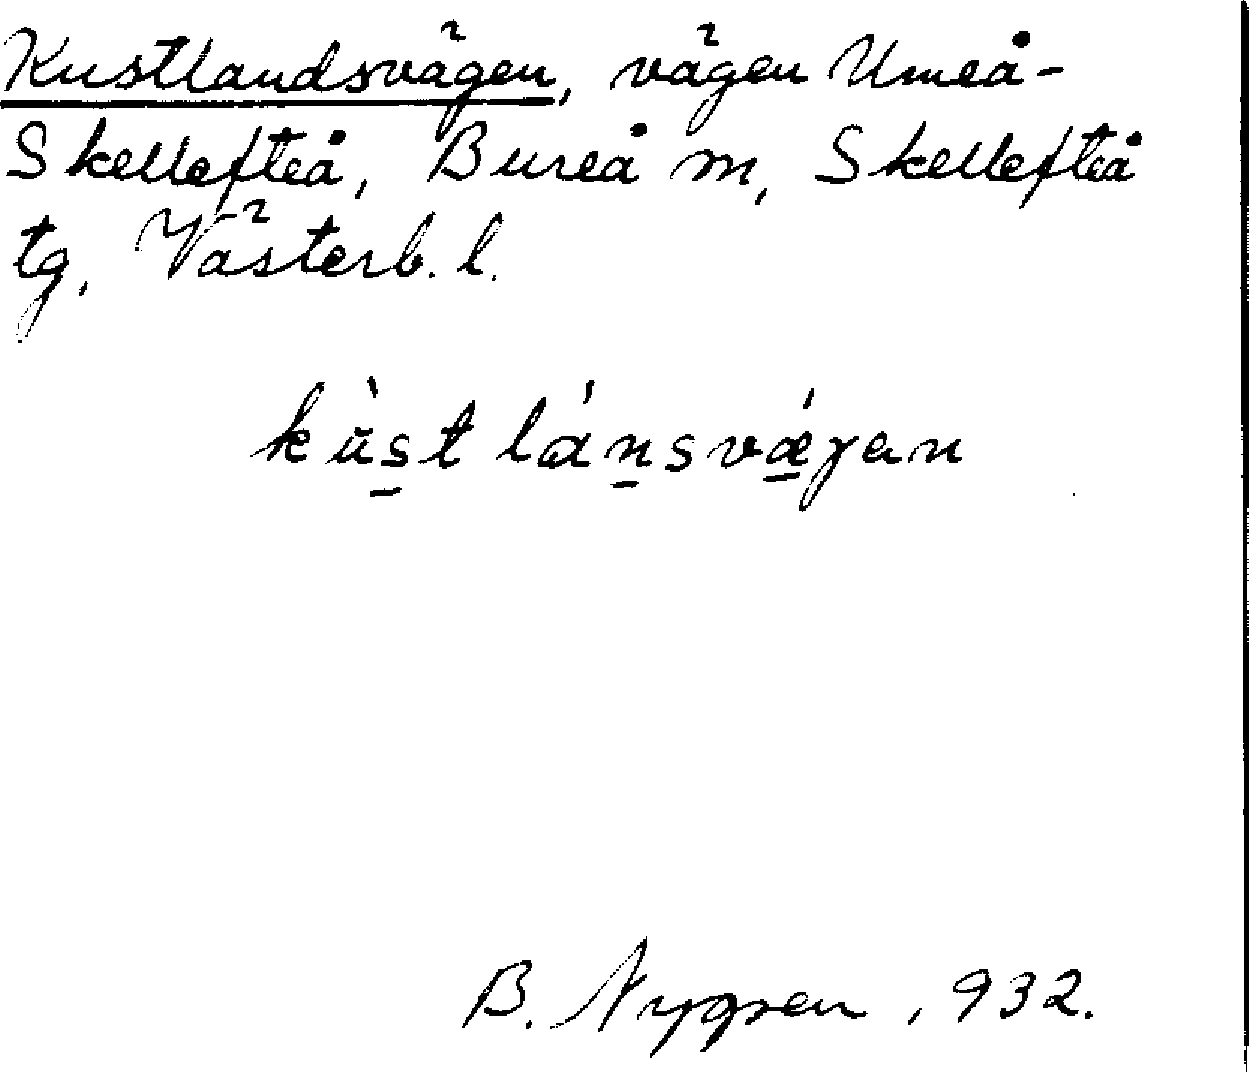 Kustlandsvägen, vägen Umeå-
Skellefteå, Bureå m, Skellefteå
tg, Västerb. l.
kùs̠t lán̠svǽ̠gan
B. Nygren, 932.